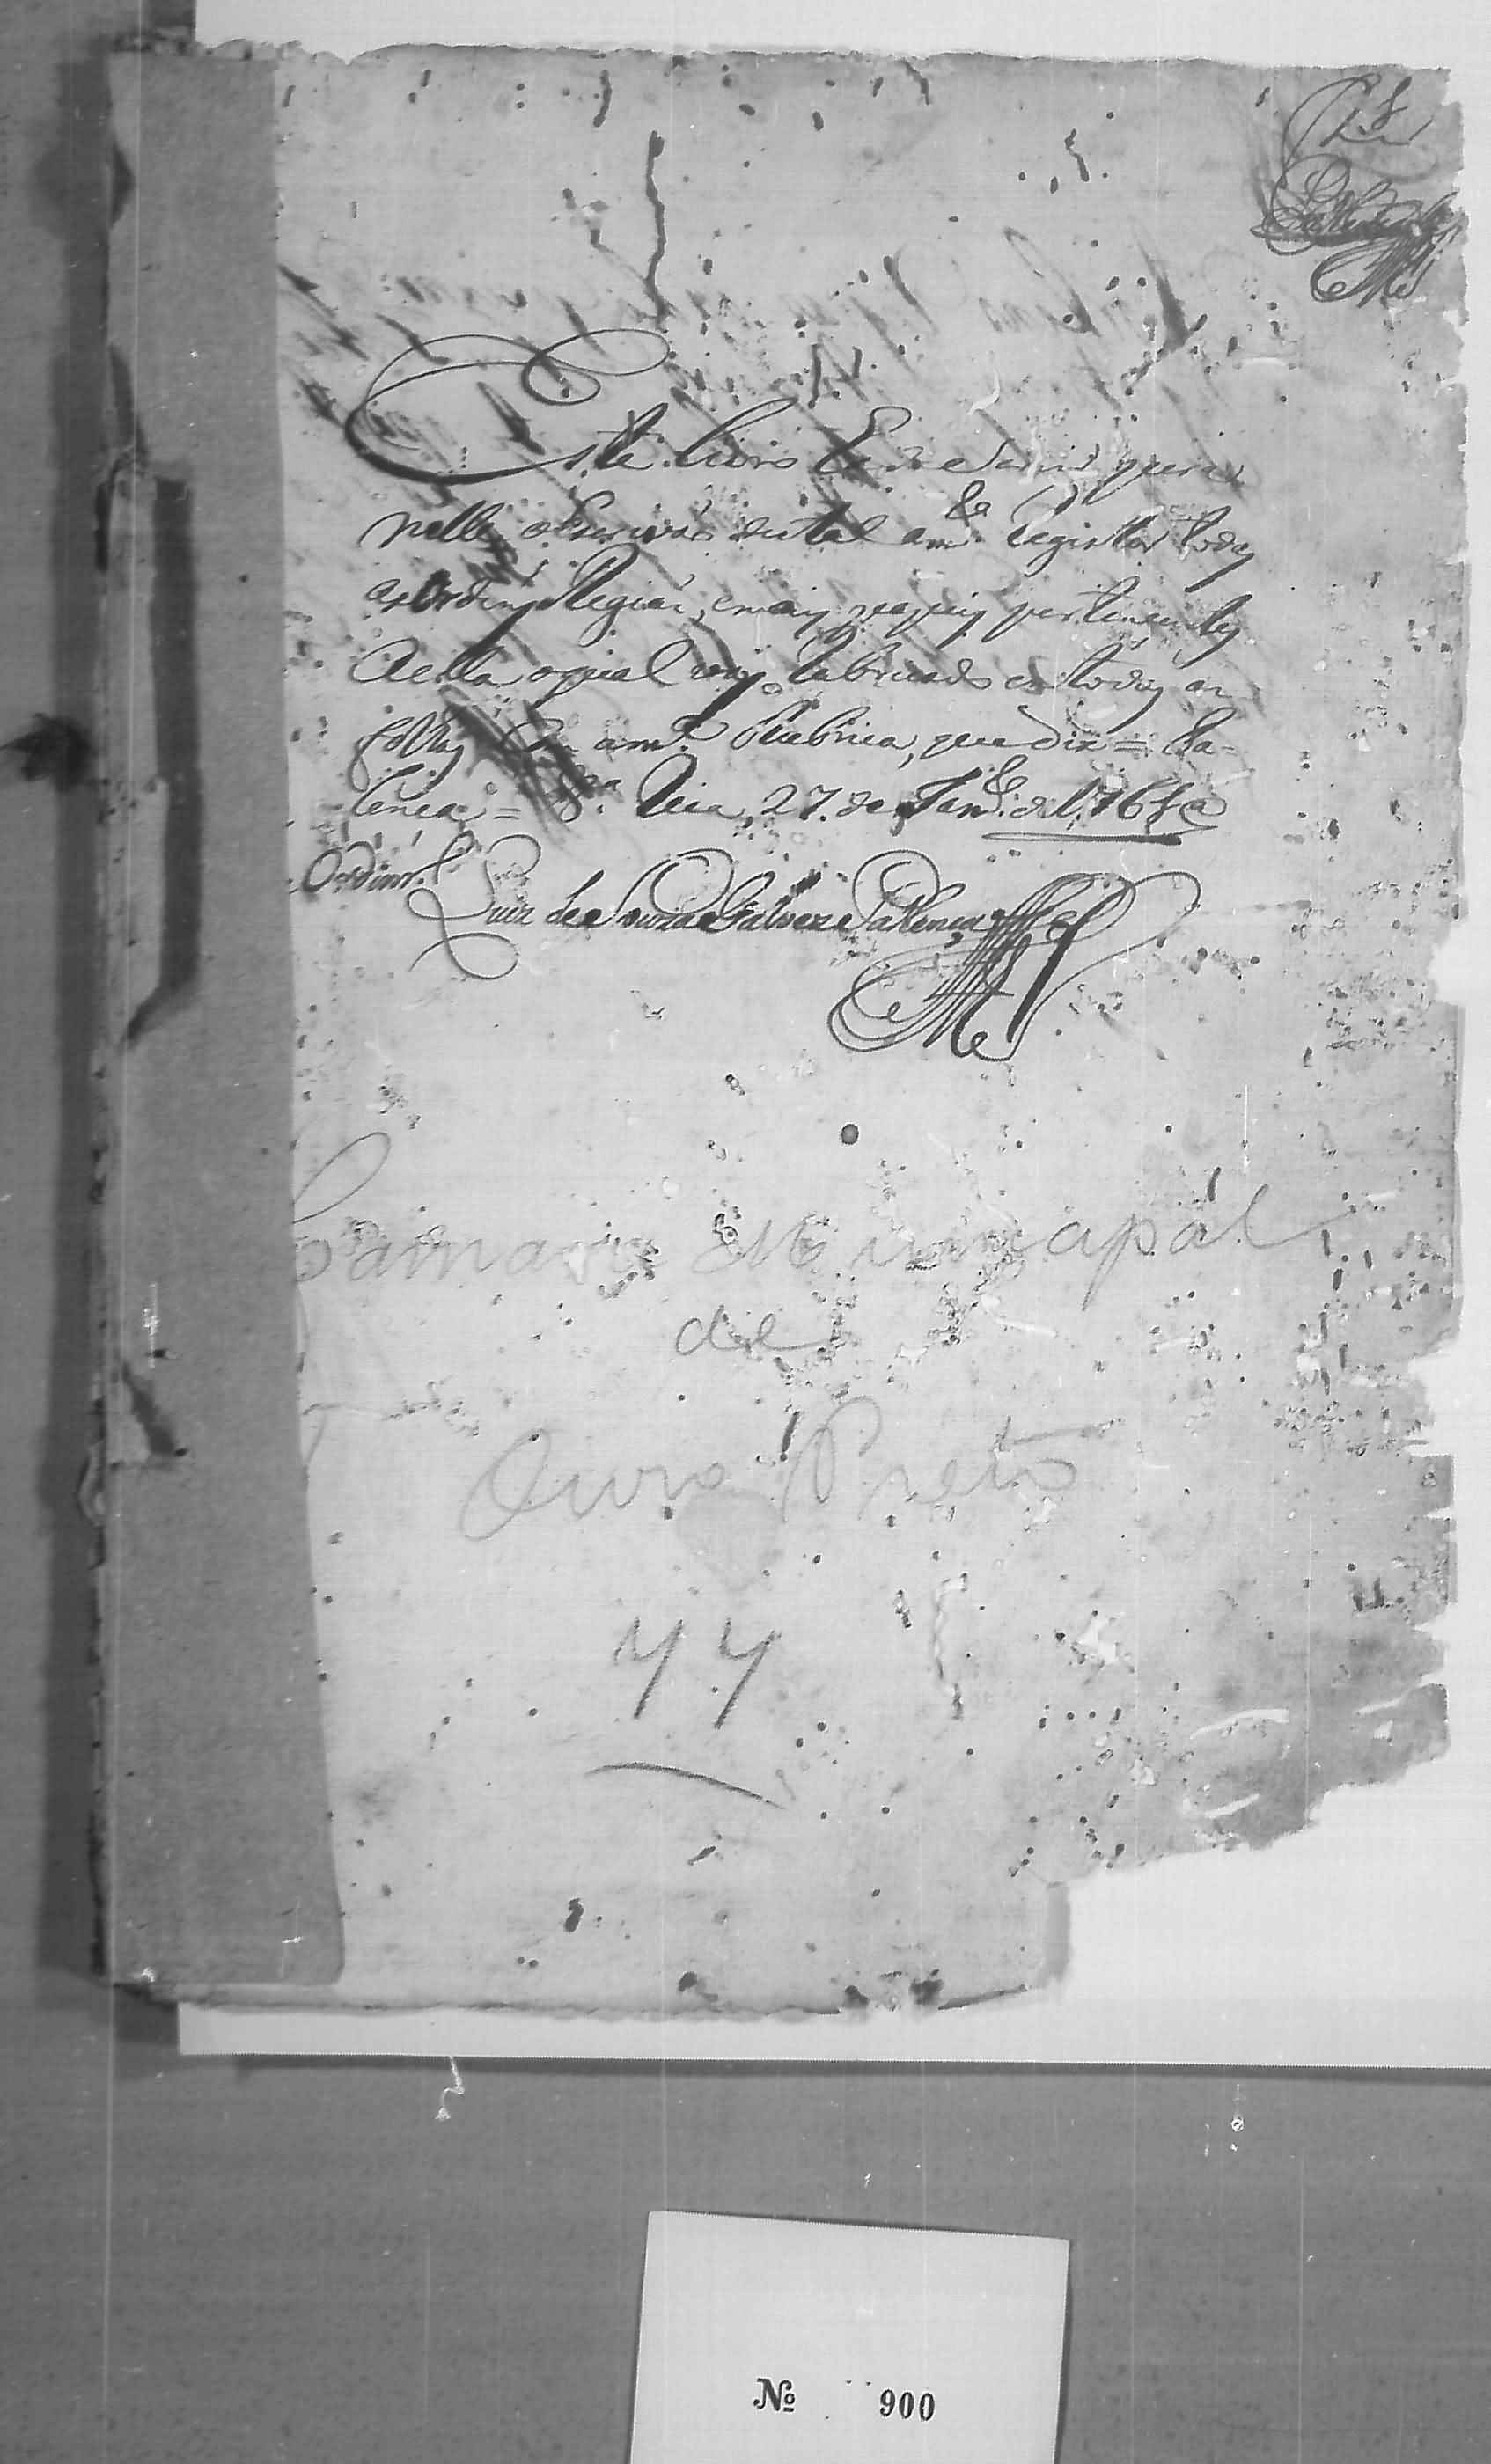 Este Livro ha de servir pera
nelle o Escrivão da Cam.ra Registar todas
as ordens Regias, e mais papeis pertencentes
a ella o qual vay Rubricado em todas as
folhas Com a m.ª Rubrica, que diz = Pa-
lença = V.ª Rica, 27. de Jan.ro de 176
Luiz de Souza Galvez e Pallença
Camara Municapal
de
Ouro Preto
77
No 900